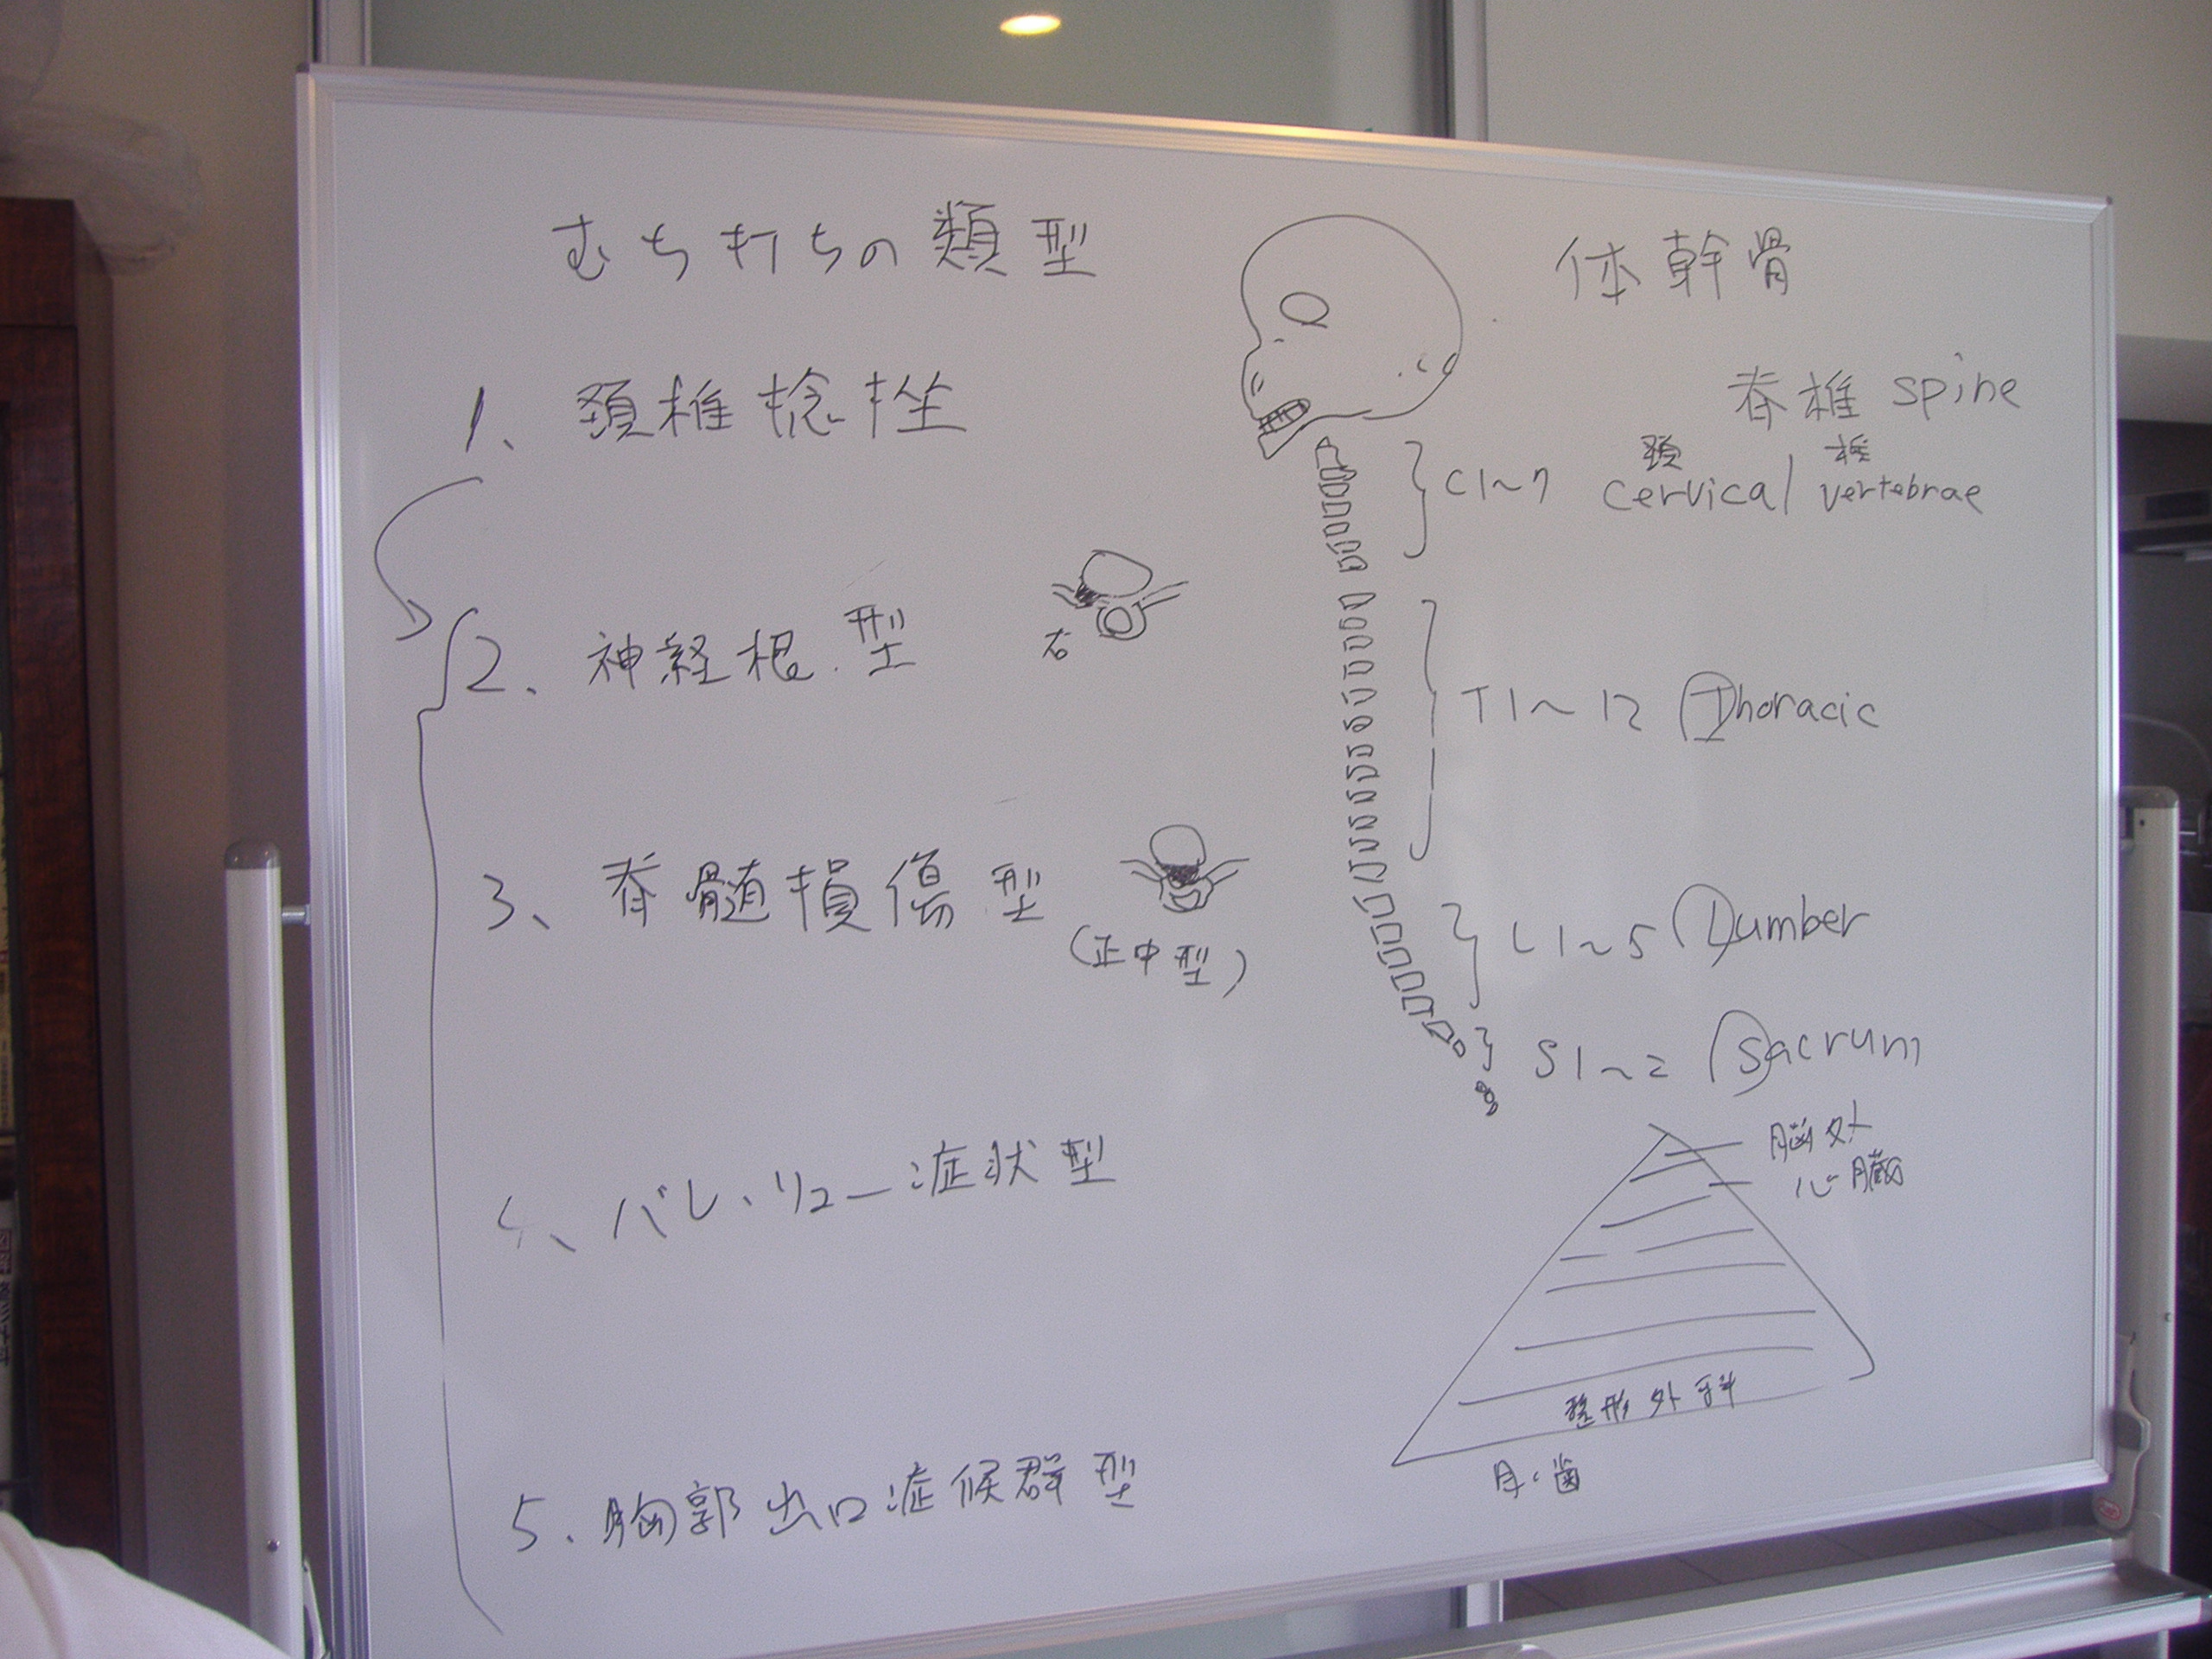 むち打ちの類型
1、頚椎捻挫
2、神経根型
右
3、脊髄損傷型
(正中型)
4、バレ、リュー症状型
5、胸郭出口症候群型
体幹骨
脊椎 spine
頚 椎
C1~7 cervical vertebrae
T1~12 Thoracic
L1~5 Lumber
S1~2 Sacrum
脳外
心臓
整形外科
歯